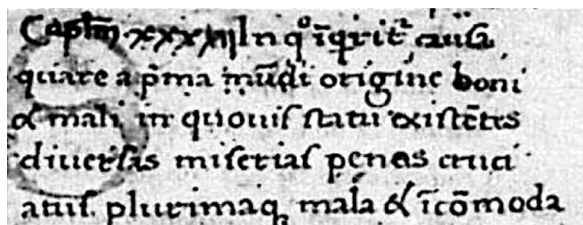 Caplm̄ xxxiii In qͦ īqrit᷑ causa
quare a p̄ma mūdi origine boni
& mali in quouis statu existētes
diuersas miserias penas cruci
atus. plurimaqꝫ mala & īcōmoda